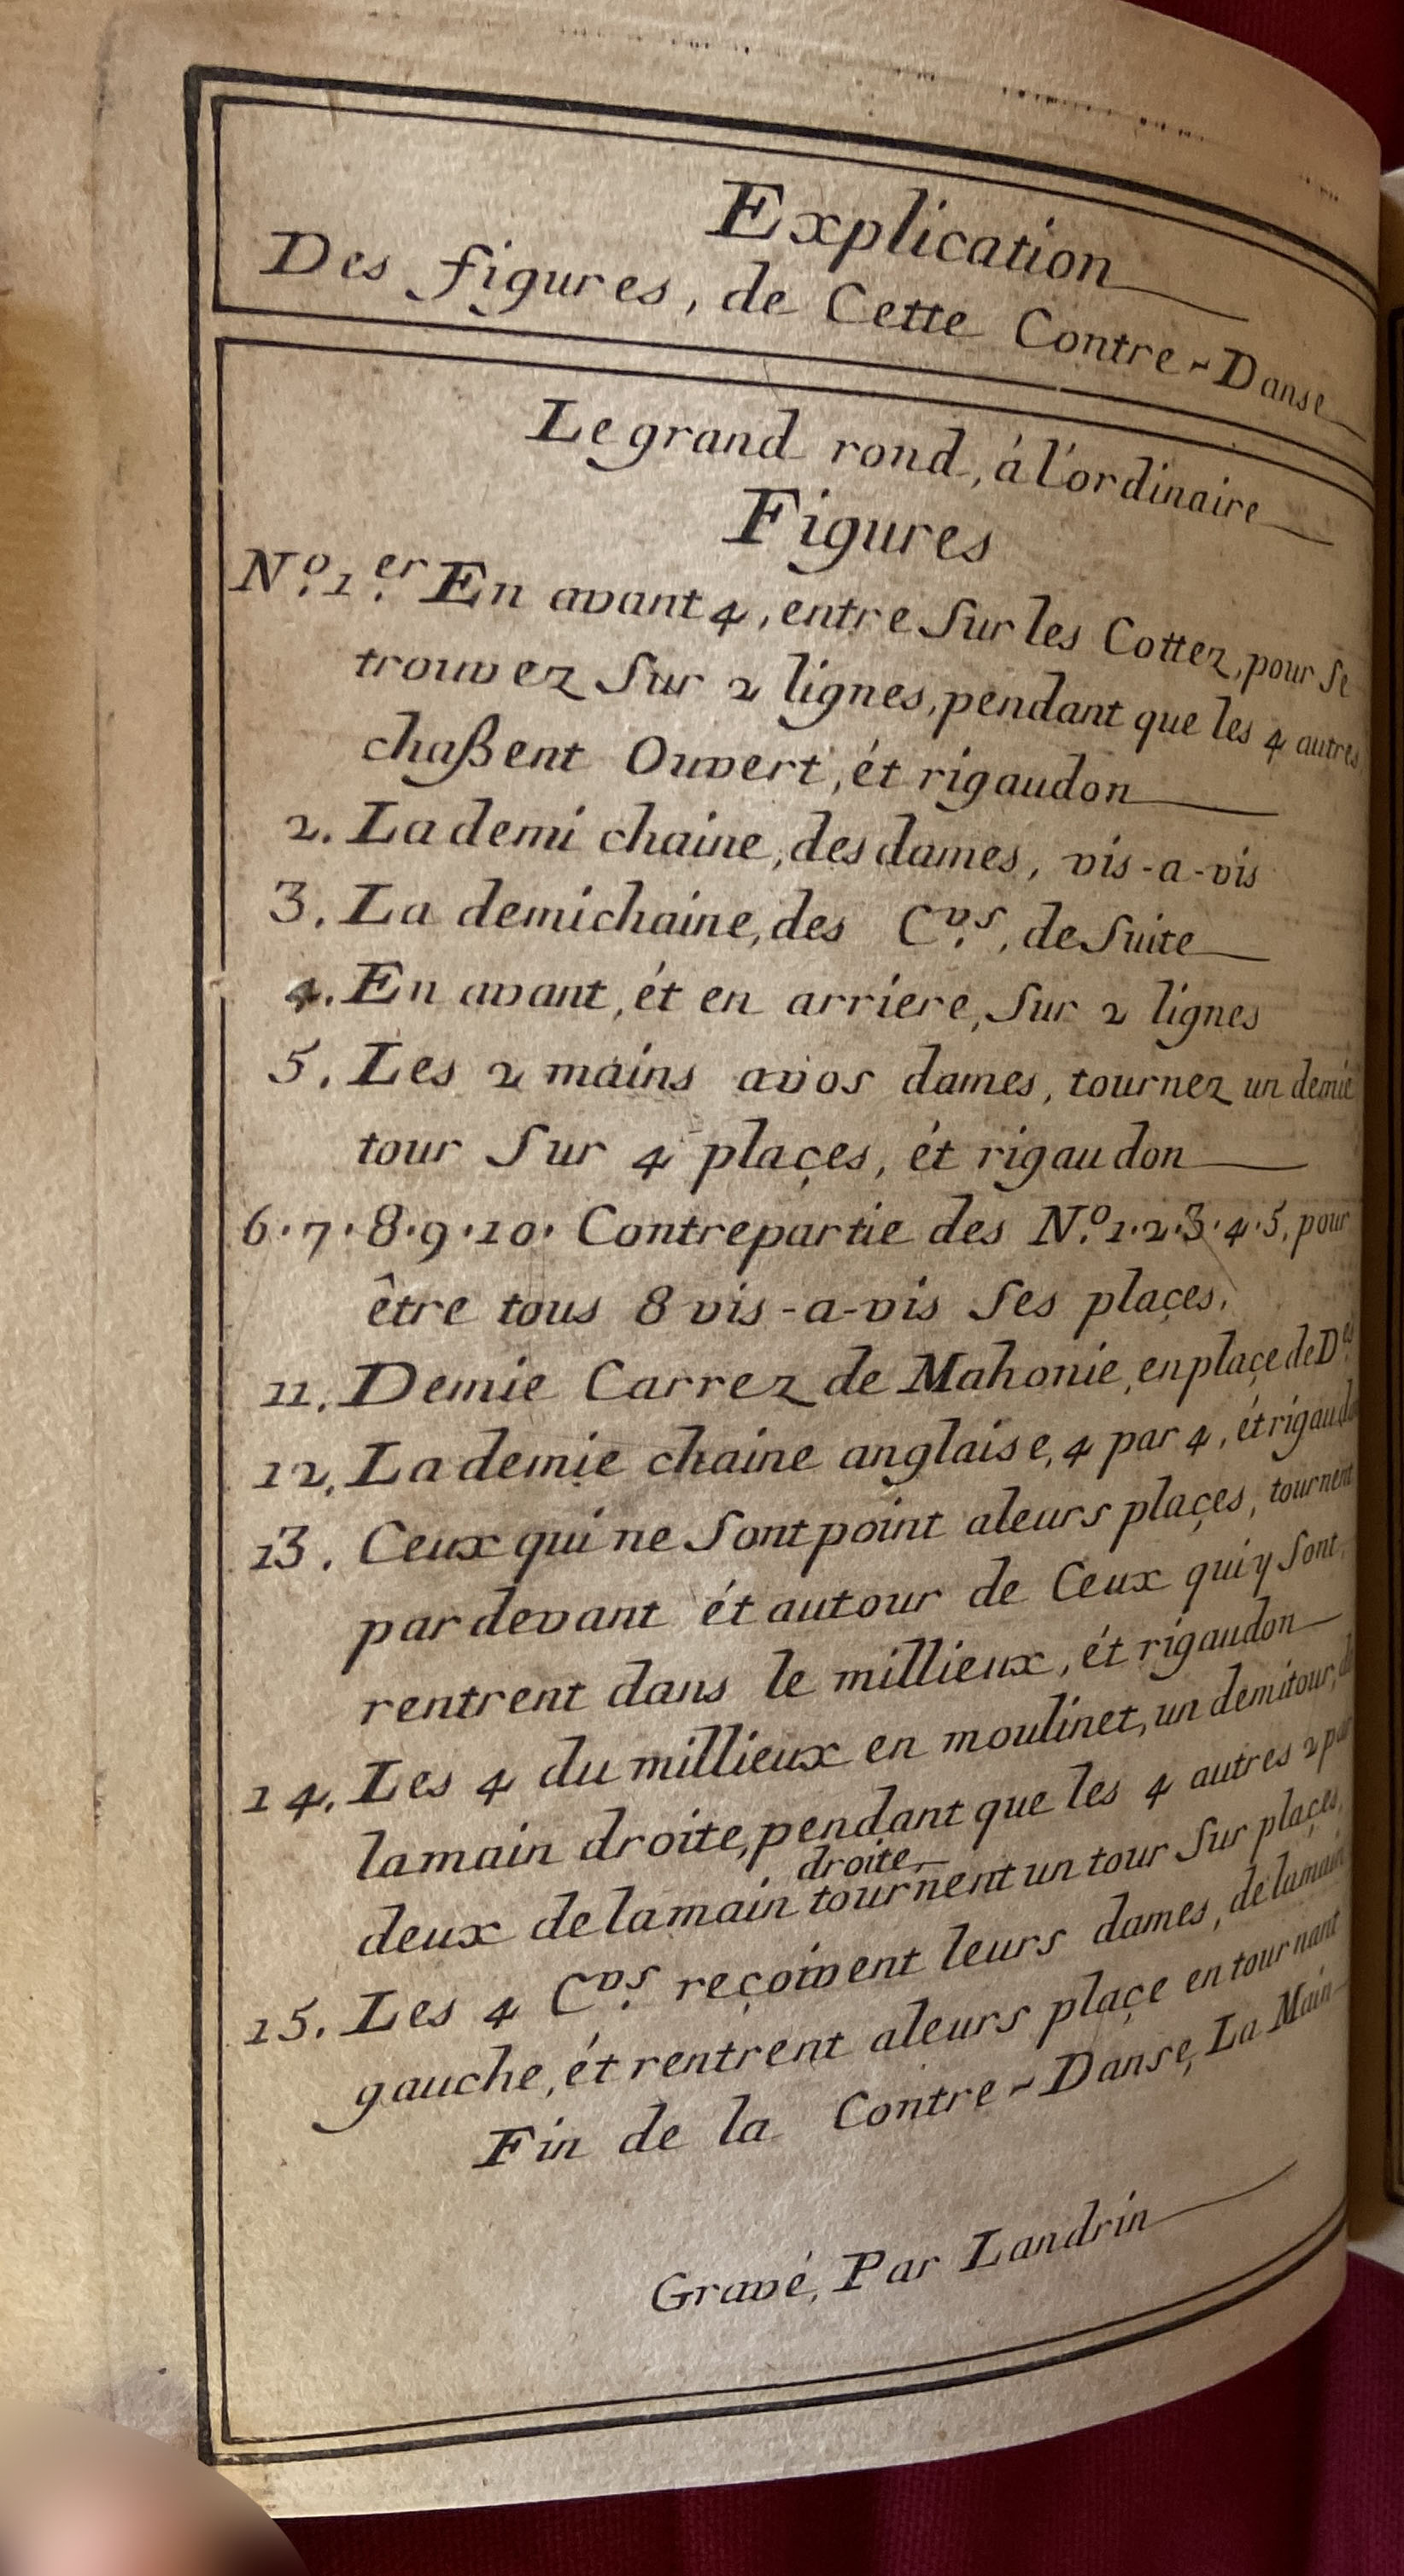 Explication
Des figures, de Cette Contre-Danse
Le grand rond, á l'ordinaire
Figures
N.º 1.er En avant 4, entre Sur les Cottez, pour Se
trouvez Sur 2 lignes, pendant que les 4 autres
chaßent Ouvert, ét rigaudon
2. La demi chaine, des dames, vis-a-vis
3. La demichaine, des C.vs, de Suite
4. En avant, ét en arriere, Sur 2 lignes
5. Les 2 mains avos dames, tournez un demie
tour Sur 4 plaçes, ét rigaudon
6.7.8.9.10. Contrepartie des N.º 1.2.3.4.5, pour
être tous 8 vis-a-vis Ses plaçes.
11. Demie Carrez de Mahonie, en plaçe de D.es
12. La demie chaine anglaise, 4 par 4, ét rigaudon
13. Ceux qui ne Sont point aleurs plaçes, tournent
par devant ét autour de Ceux qui y Sont,
rentrent dans le millieux, ét rigaudon
14. Les 4 du millieux en moulinet, un demitour, de
lamain droite, pendant que les 4 autres 2 par
deux de lamain droite tournent un tour Sur plaçes,
15. Les 4 C.vs reçoivent leurs dames, de lamain
gauche, ét rentrent aleurs plaçe en tournant
Fin de la Contre-Danse, La Main
Gravé, Par Landrin